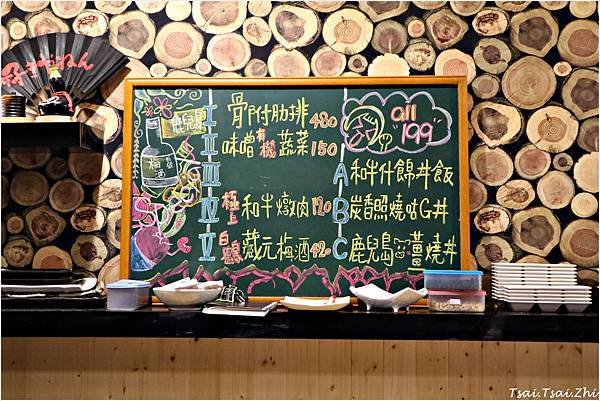 鹿兒島
梅酒
I 骨附肋排 480
II 味噌有機蔬菜 150
III
IV 極上 和牛燉肉 120
V 白鶴 藏元梅酒 420
all 199
A 和牛什錦丼飯
B 炭香照燒咕G丼
C 鹿兒島薑燒丼
Tsai.Tsai.Zhi